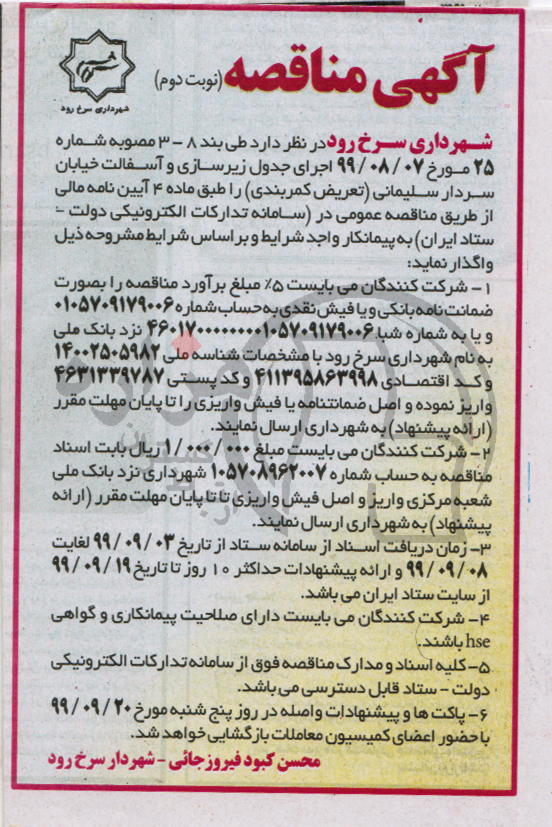 آگهی مناقصه (نوبت دوم)
شهرداری سرخ رود
شهرداری سرخ رود در نظر دارد طی بند ۸ - ۳ مصوبه شماره
۲۵ مورخ ۹۹/۰۸/۰۷ اجرای جدول زیرسازی و آسفالت خیابان
سردار سلیمانی (تعریض کمربندی) را طبق ماده ۴ آیین نامه مالی
از طریق مناقصه عمومی در (سامانه تدارکات الکترونیکی دولت -
ستاد ایران) به پیمانکار واجد شرایط و بر اساس شرایط مشروحه ذیل
واگذار نماید:
۱- شرکت کنندگان می بایست ۵٪ مبلغ برآورد مناقصه را بصورت
ضمانت نامه بانکی و یا فیش نقدی به حساب شماره ۰۱۰۵۷۰۹۱۷۹۰۰۶
و یا به شماره شبا ۴۶۰۱۷۰۰۰۰۰۰۰۰۱۰۵۷۰۹۱۷۹۰۰۶ نزد بانک ملی
به نام شهرداری سرخ رود با مشخصات شناسه ملی ۱۴۰۰۲۵۰۵۹۸۲
و کد اقتصادی ۴۱۱۳۹۵۸۶۳۹۹۸ و کد پستی ۴۶۳۱۳۳۹۷۸۷
واریز نموده و اصل ضمانتنامه یا فیش واریزی را تا پایان مهلت مقرر
(ارائه پیشنهاد) به شهرداری ارسال نمایند.
۲- شرکت کنندگان می بایست مبلغ ۱/۰۰۰/۰۰۰ ریال بابت اسناد
مناقصه به حساب شماره ۰۱۰۵۷۰۸۹۶۲۰۰۷ شهرداری نزد بانک ملی
شعبه مرکزی واریز و اصل فیش واریزی تا تا پایان مهلت مقرر (ارائه
پیشنهاد) به شهرداری ارسال نمایند.
۳- زمان دریافت اسناد از سامانه ستاد از تاریخ ۹۹/۰۹/۰۳ لغایت
۹۹/۰۹/۰۸ و ارائه پیشنهادات حداکثر ۱۰ روز تا تاریخ ۹۹/۰۹/۱۹
از سایت ستاد ایران می باشد.
۴- شرکت کنندگان می بایست دارای صلاحیت پیمانکاری و گواهی
hse باشند.
۵- کلیه اسناد و مدارک مناقصه فوق از سامانه تدارکات الکترونیکی
دولت - ستاد قابل دسترسی می باشد.
۶- پاکت ها و پیشنهادات واصله در روز پنج شنبه مورخ ۹۹/۰۹/۲۰
با حضور اعضای کمیسیون معاملات بازگشایی خواهد شد.
محسن کبود فیروزجائی - شهردار سرخ رود